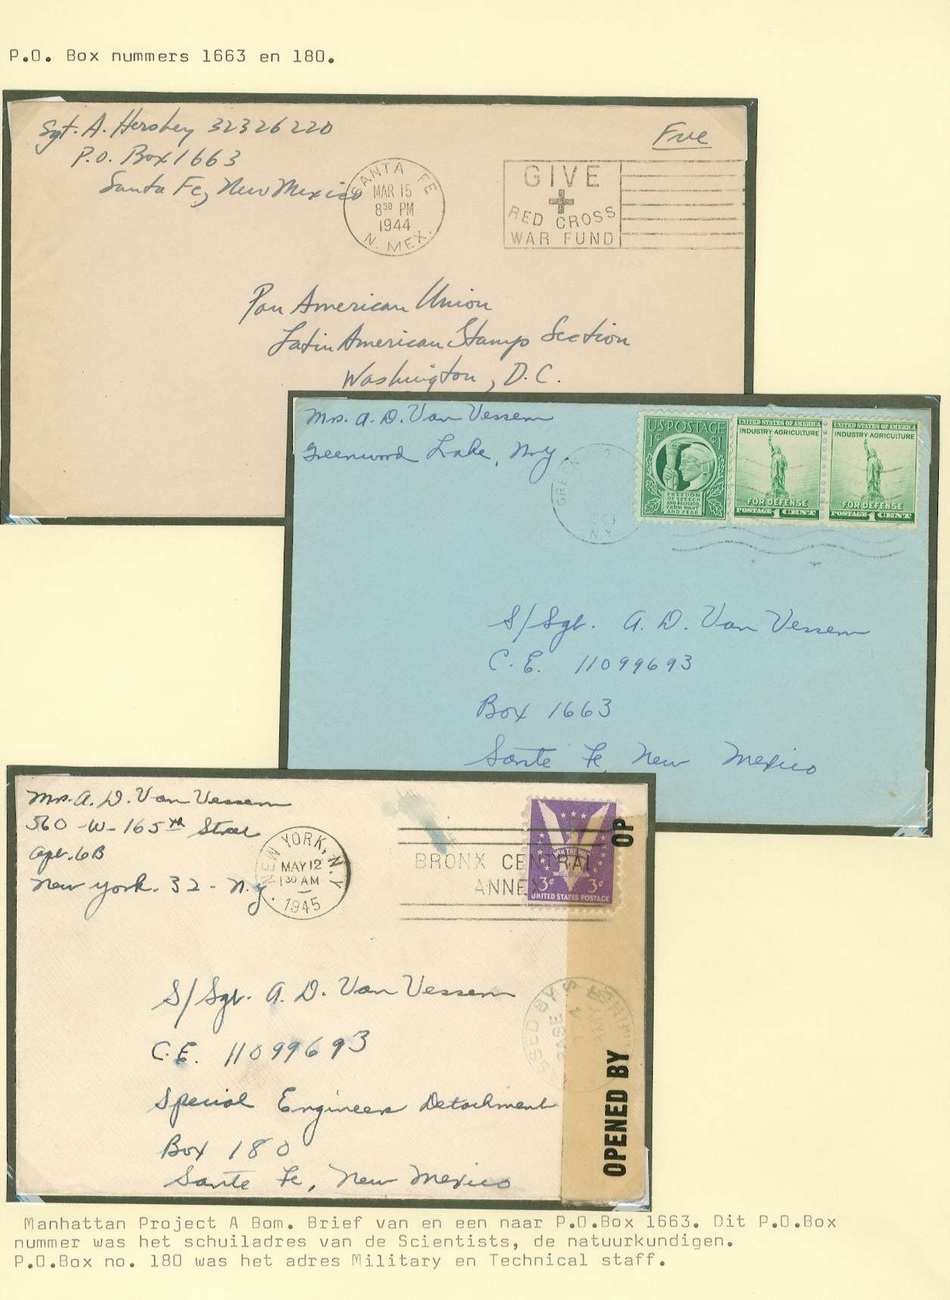 P.O. Box nummers 1663 en 180.
Sgt. A. Hershey 32326220
P.O. Box 1663
Santa Fe, New Mexico
Free
SANTA FE
MAR 15
8 30 PM
1944
N. MEX.
GIVE
RED CROSS
WAR FUND
Pan American Union
Latin American Stamps Section
Washington, D.C.
Mrs. A. D. Van Vessem
Greenwood Lake, N.Y.
N.Y.
U.S. POSTAGE
1 1
FREEDOM
OF SPEECH
AND RELIGION,
FROM WANT
AND FEAR
UNITED STATES OF AMERICA
INDUSTRY AGRICULTURE
FOR DEFENSE
POSTAGE 1 CENT
UNITED STATES OF AMERICA
INDUSTRY AGRICULTURE
FOR DEFENSE
POSTAGE 1 CENT
S/Sgt. A. D. Van Vessem
C.E. 11099693
Box 1663
Sante Fe, New Mexico
Mrs. A. D. Van Vessem
560 -W- 165th Street
Apt. 6B
New York. 32 - N.Y.
NEW YORK, N.Y.
MAY 12
1 30 AM
1945
BRONX CENTRAL
ANNEX
3¢ 3¢
UNITED STATES POSTAGE
OP
OPENED BY
BASE
S/Sgt. A. D. Van Vessem
C.E. 11099693
Special Engineer Detachment
Box 180
Sante Fe, New Mexico
Manhattan Project A Bom. Brief van en een naar P.O.Box 1663. Dit P.O.Box
nummer was het schuiladres van de Scientists, de natuurkundigen.
P.O.Box no. 180 was het adres Military en Technical staff.